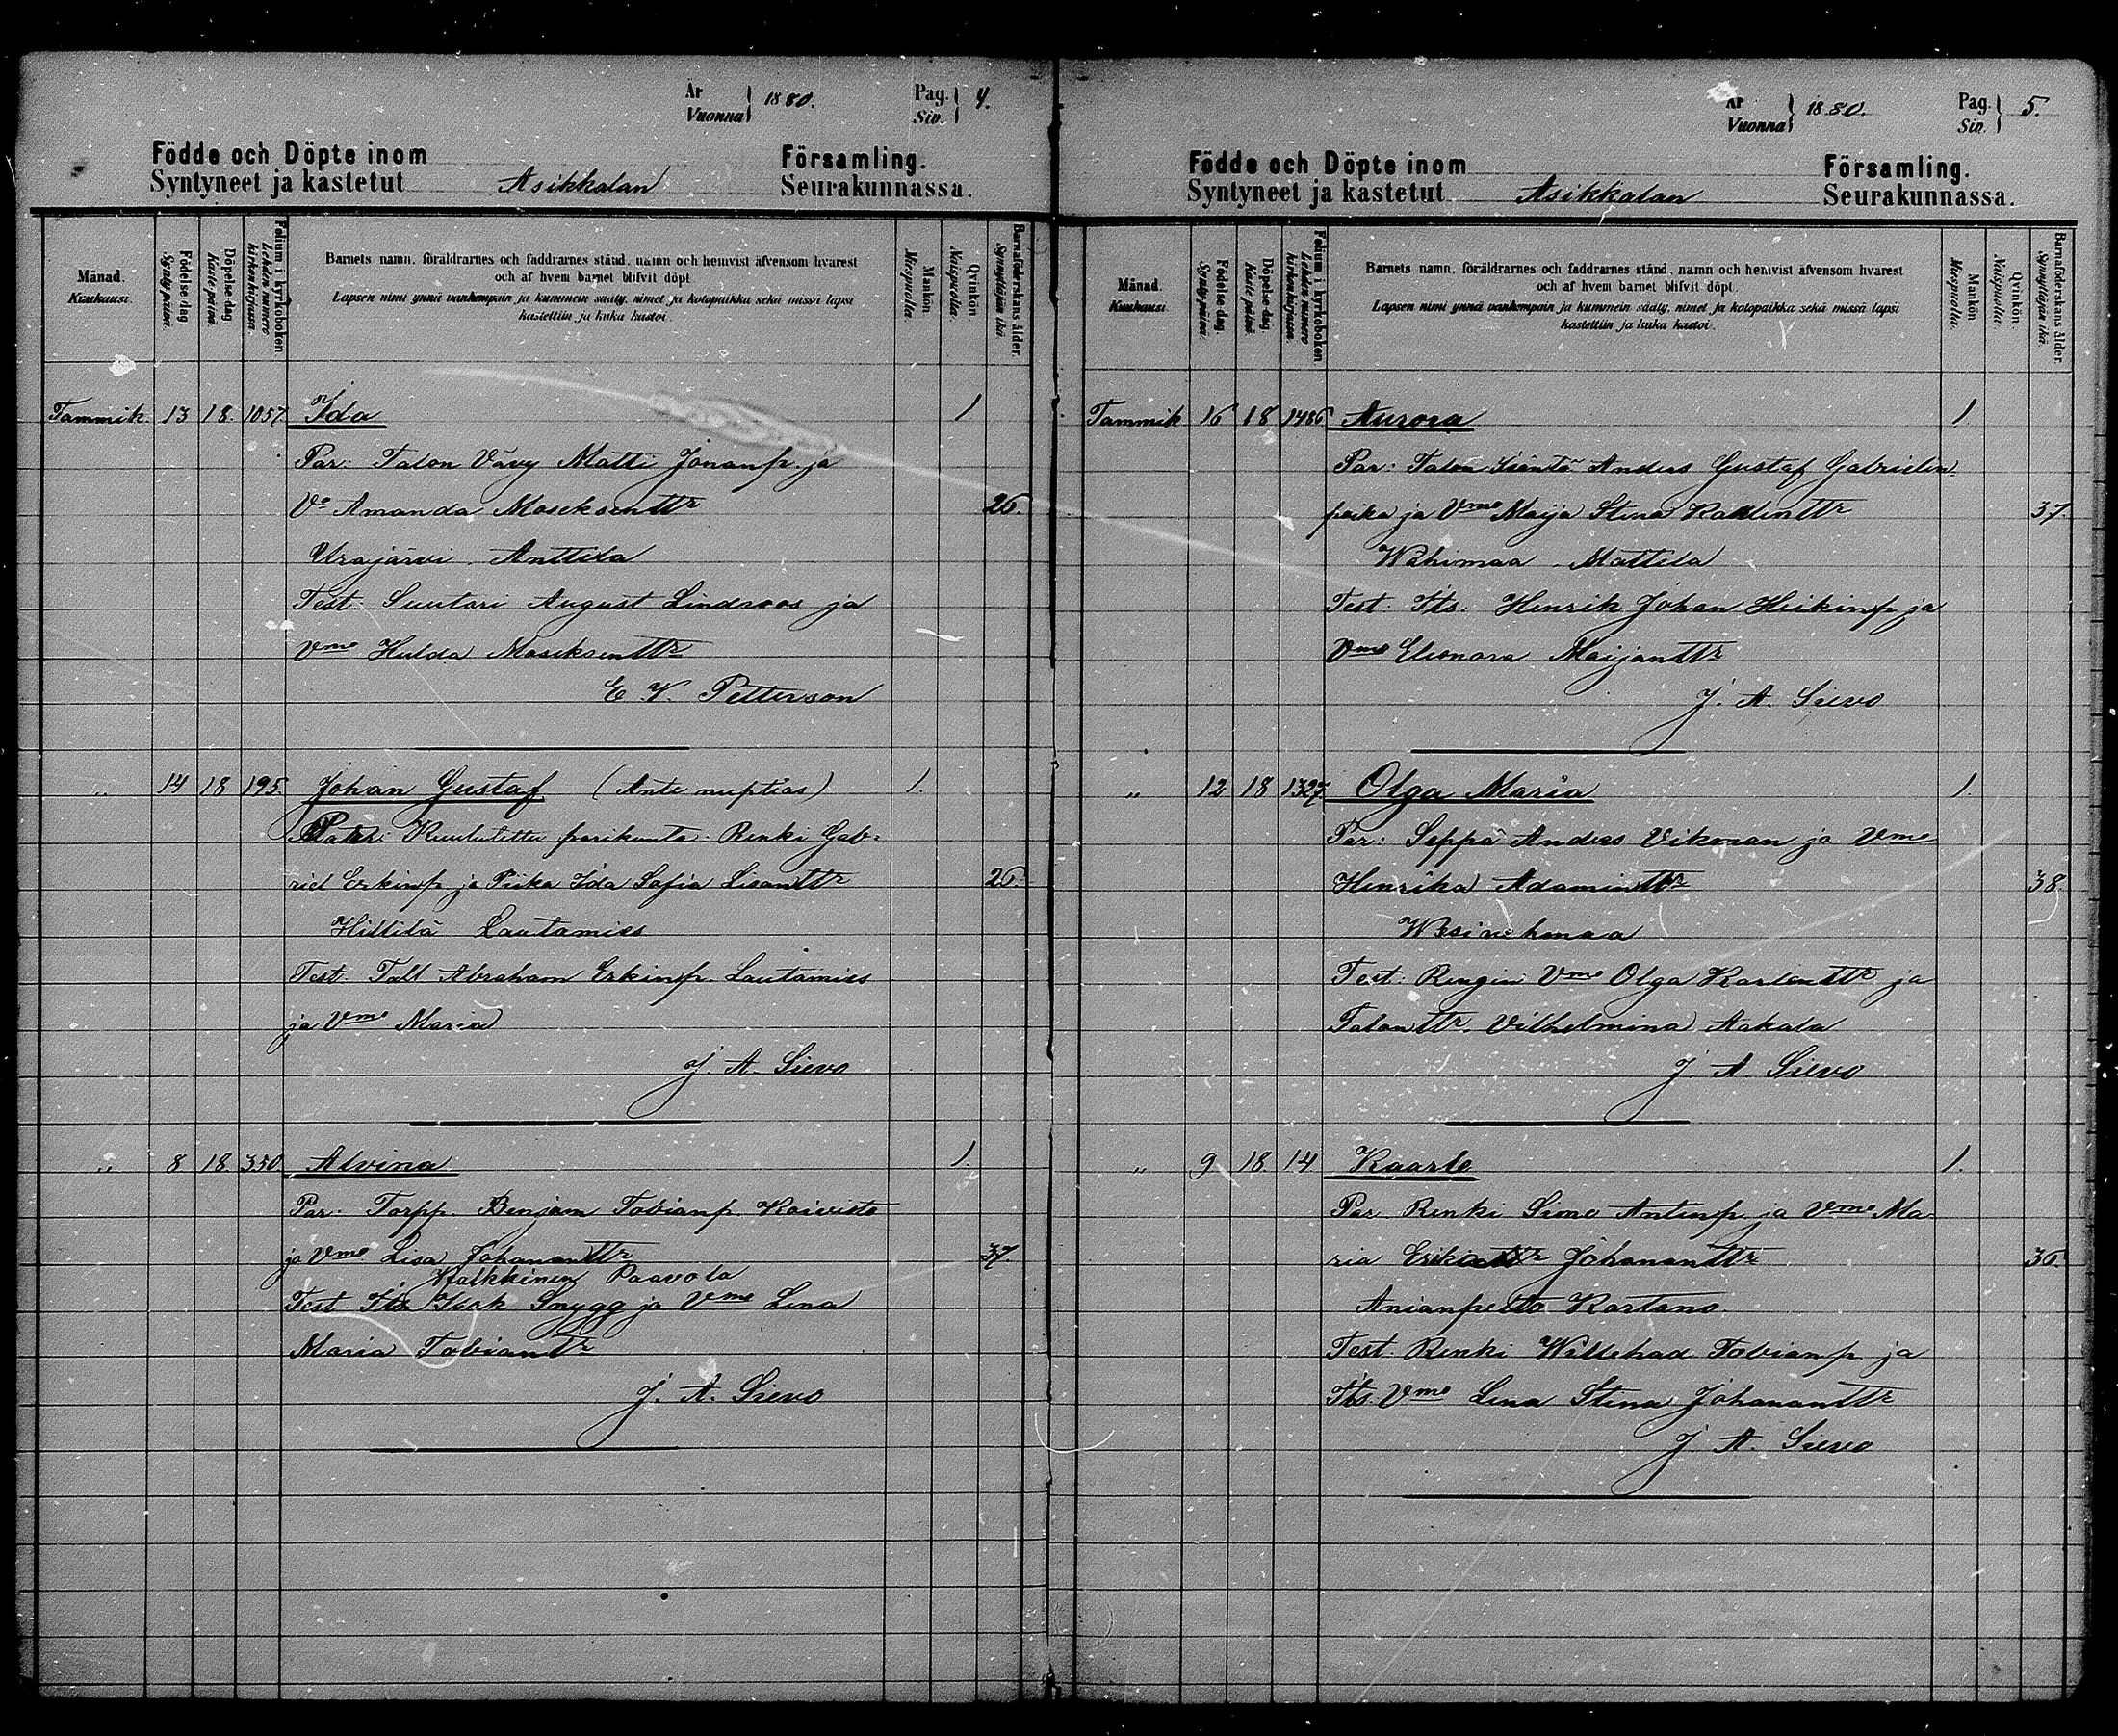 År
Vuonna 1880.
Pag.
Siv. 4.
Födde och Döpte inom Församling.
Syntyneet ja kastetut Asikkalan Seurakunnassa.
Månad. Kuukausi.
Födelse dag Synty päivä
Döpelse dag Kaste päivä
Folium i kyrkoboken Lehden numero kirkonkirjassa.
Barnets namn, föräldrarnes och faddrarnes stånd, namn och hemvist äfvensom hvarest
och af hvem barnet blifvit döpt
Lapsen nimi ynnä vanhempain ja kummein sääty, nimet ja kotopaikka sekä missä lapsi
kastettiin ja kuka kastoi.
Mankön Miespuolia.
Qvinkön Naispuolia.
Barnaföderskans ålder. Synnyttäjän ikä.
Tammik. 13 18. 1057. Ida 1
Par: Talon Vävy Matti Jonanp. ja
Vo Amanda Moseksenttr 26.
Urajärvi. Anttila
Test: Suutari August Lindroos ja
Vmo Hulda Moseksenttr
E V. Petterson
„ 14 18 195. Johan Gustaf (Ante nuptias) 1.
Par: Kuulutettu parikunta: Renki Gab-
riel Erkinp ja Piika Ida Sofia Lisanttr 26.
Hillilä Lautamies
Test: Tall Abraham Erkinp. Lautamies
ja Vmo Maria
J A. Sievo
„ 8 18 350 Alvina 1.
Par: Torpp. Benjam Tobianp. Koivisto
ja Vmo Lisa Johananttr 37.
Kalkkinen Paavola
Test Its Isak Snygg ja Vmo Lena
Maria Tobianttr
J. A. Sievo
År
Vuonna 1880.
Pag.
Siv. 5.
Födde och Döpte inom Församling.
Syntyneet ja kastetut Asikkalan Seurakunnassa.
Månad. Kuukausi.
Födelse dag. Synty päivä.
Döpelse dag Kaste päivä.
Folium i kyrkoboken. Lehden numero kirkonkirjassa.
Barnets namn, föräldrarnes och faddrarnes stånd, namn och hemvist äfvensom hvarest
och af hvem barnet blifvit döpt.
Lapsen nimi ynnä vanhempain ja kummein sääty, nimet ja kotopaikka sekä missä lapsi
kastettiin ja kuka kastoi.
Mankön Miespuolia.
Qvinkön. Naispuolia.
Barnaföderskans ålder. Synnyttäjän ikä.
Tammik 16 18 1486 Aurora 1.
Par: Talon Isäntä Anders Gustaf Gabrielin-
poika ja Vmo Maija Stina Kallenttr 37.
Wähimaa. Mattila
Test. Its. Henrik Johan Heikinp ja
Vmo Eleonora Maijanttr
J. A. Sievo
„ 12 18 1327. Olga Maria 1.
Par: Seppä Anders Vikman ja Vmo
Henrika Adaminttr 38.
Wesivehmaa
Test: Rengin Vmo Olga Karlenttr ja
Talonttr. Vilhelmina Aakala
J. A Sievo
„ 9 18. 14 Kaarle 1.
Par Renki Simo Antinp ja Vmo Ma-
ria Johananttr 36.
Anianpelto Kartano.
Test. Renki Willehad Tobianp ja
Its. Vmo Lena Stina Johananttr
J A. Sievo